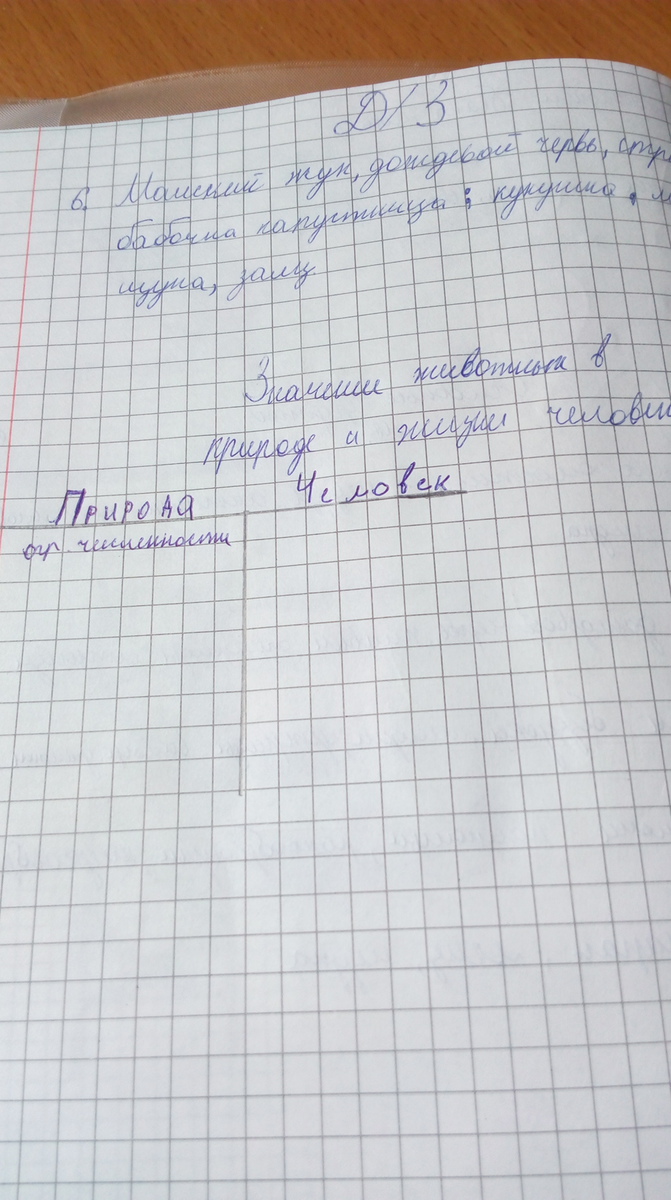 Д/З
6. Майский жук, дождевой червь, стр
бабочка капустница; кукушка, м
щука, заяц
Значение животных в
природе и жизни человек
Природа Человек
огр. численности